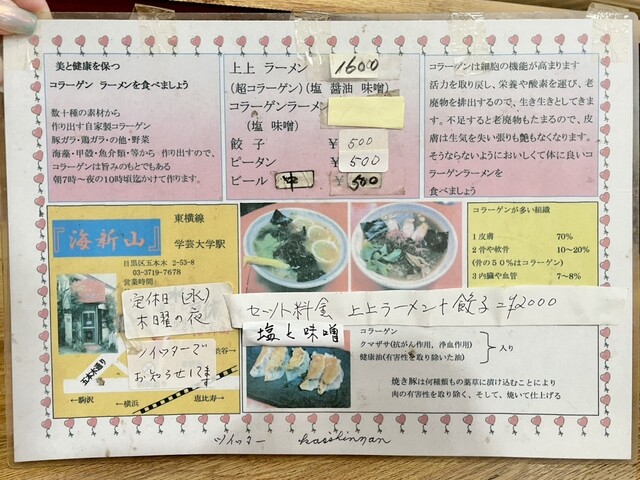 美と健康を保つ
コラーゲン ラーメンを食べましょう
数十種の素材から
作り出す自家製コラーゲン
豚ガラ・鶏ガラ・の他・野菜
海藻・甲殻・魚介類・等から 作り出すので、
コラーゲンは旨みのもとでもある
朝7時〜夜の10時頃迄かけて作ります。
上上 ラーメン 1600
(超コラーゲン)(塩 醤油 味噌)
コラーゲンラーメン
(塩 味噌)
餃子 ¥500
ピータン ¥500
ビール 中 ¥500
コラーゲンは細胞の機能が高まります
活力を取り戻し、栄養や酸素を運び、老
廃物を排出するので、生き生きとしてきま
す。不足すると老廃物もたまるので、皮
膚は生気を失い張りも艶もなくなります。
そうならないようにおいしくて体に良いコ
ラーゲンラーメンを
食べましょう
『海新山』
東横線
学芸大学駅
目黒区五本木 2-53-8
03-3719-7678
営業時間
定休日(水)
木曜の夜
ツイッターで
お知らせしてます
五本木通り
渋谷→
←駒沢
←横浜
恵比寿→
コラーゲンが多い組織
1 皮膚 70%
2 骨や軟骨 10〜20%
(骨の50%はコラーゲン)
3 内臓や血管 7〜8%
セット料金 上上ラーメン+餃子=¥2000
塩と味噌
コラーゲン
クマザサ(抗がん作用、浄血作用)
健康油(有害性を取り除いた油)
入り
焼き豚は何種類もの薬草に漬け込むことにより
肉の有害性を取り除く、そして、焼いて仕上げる
ツイッター